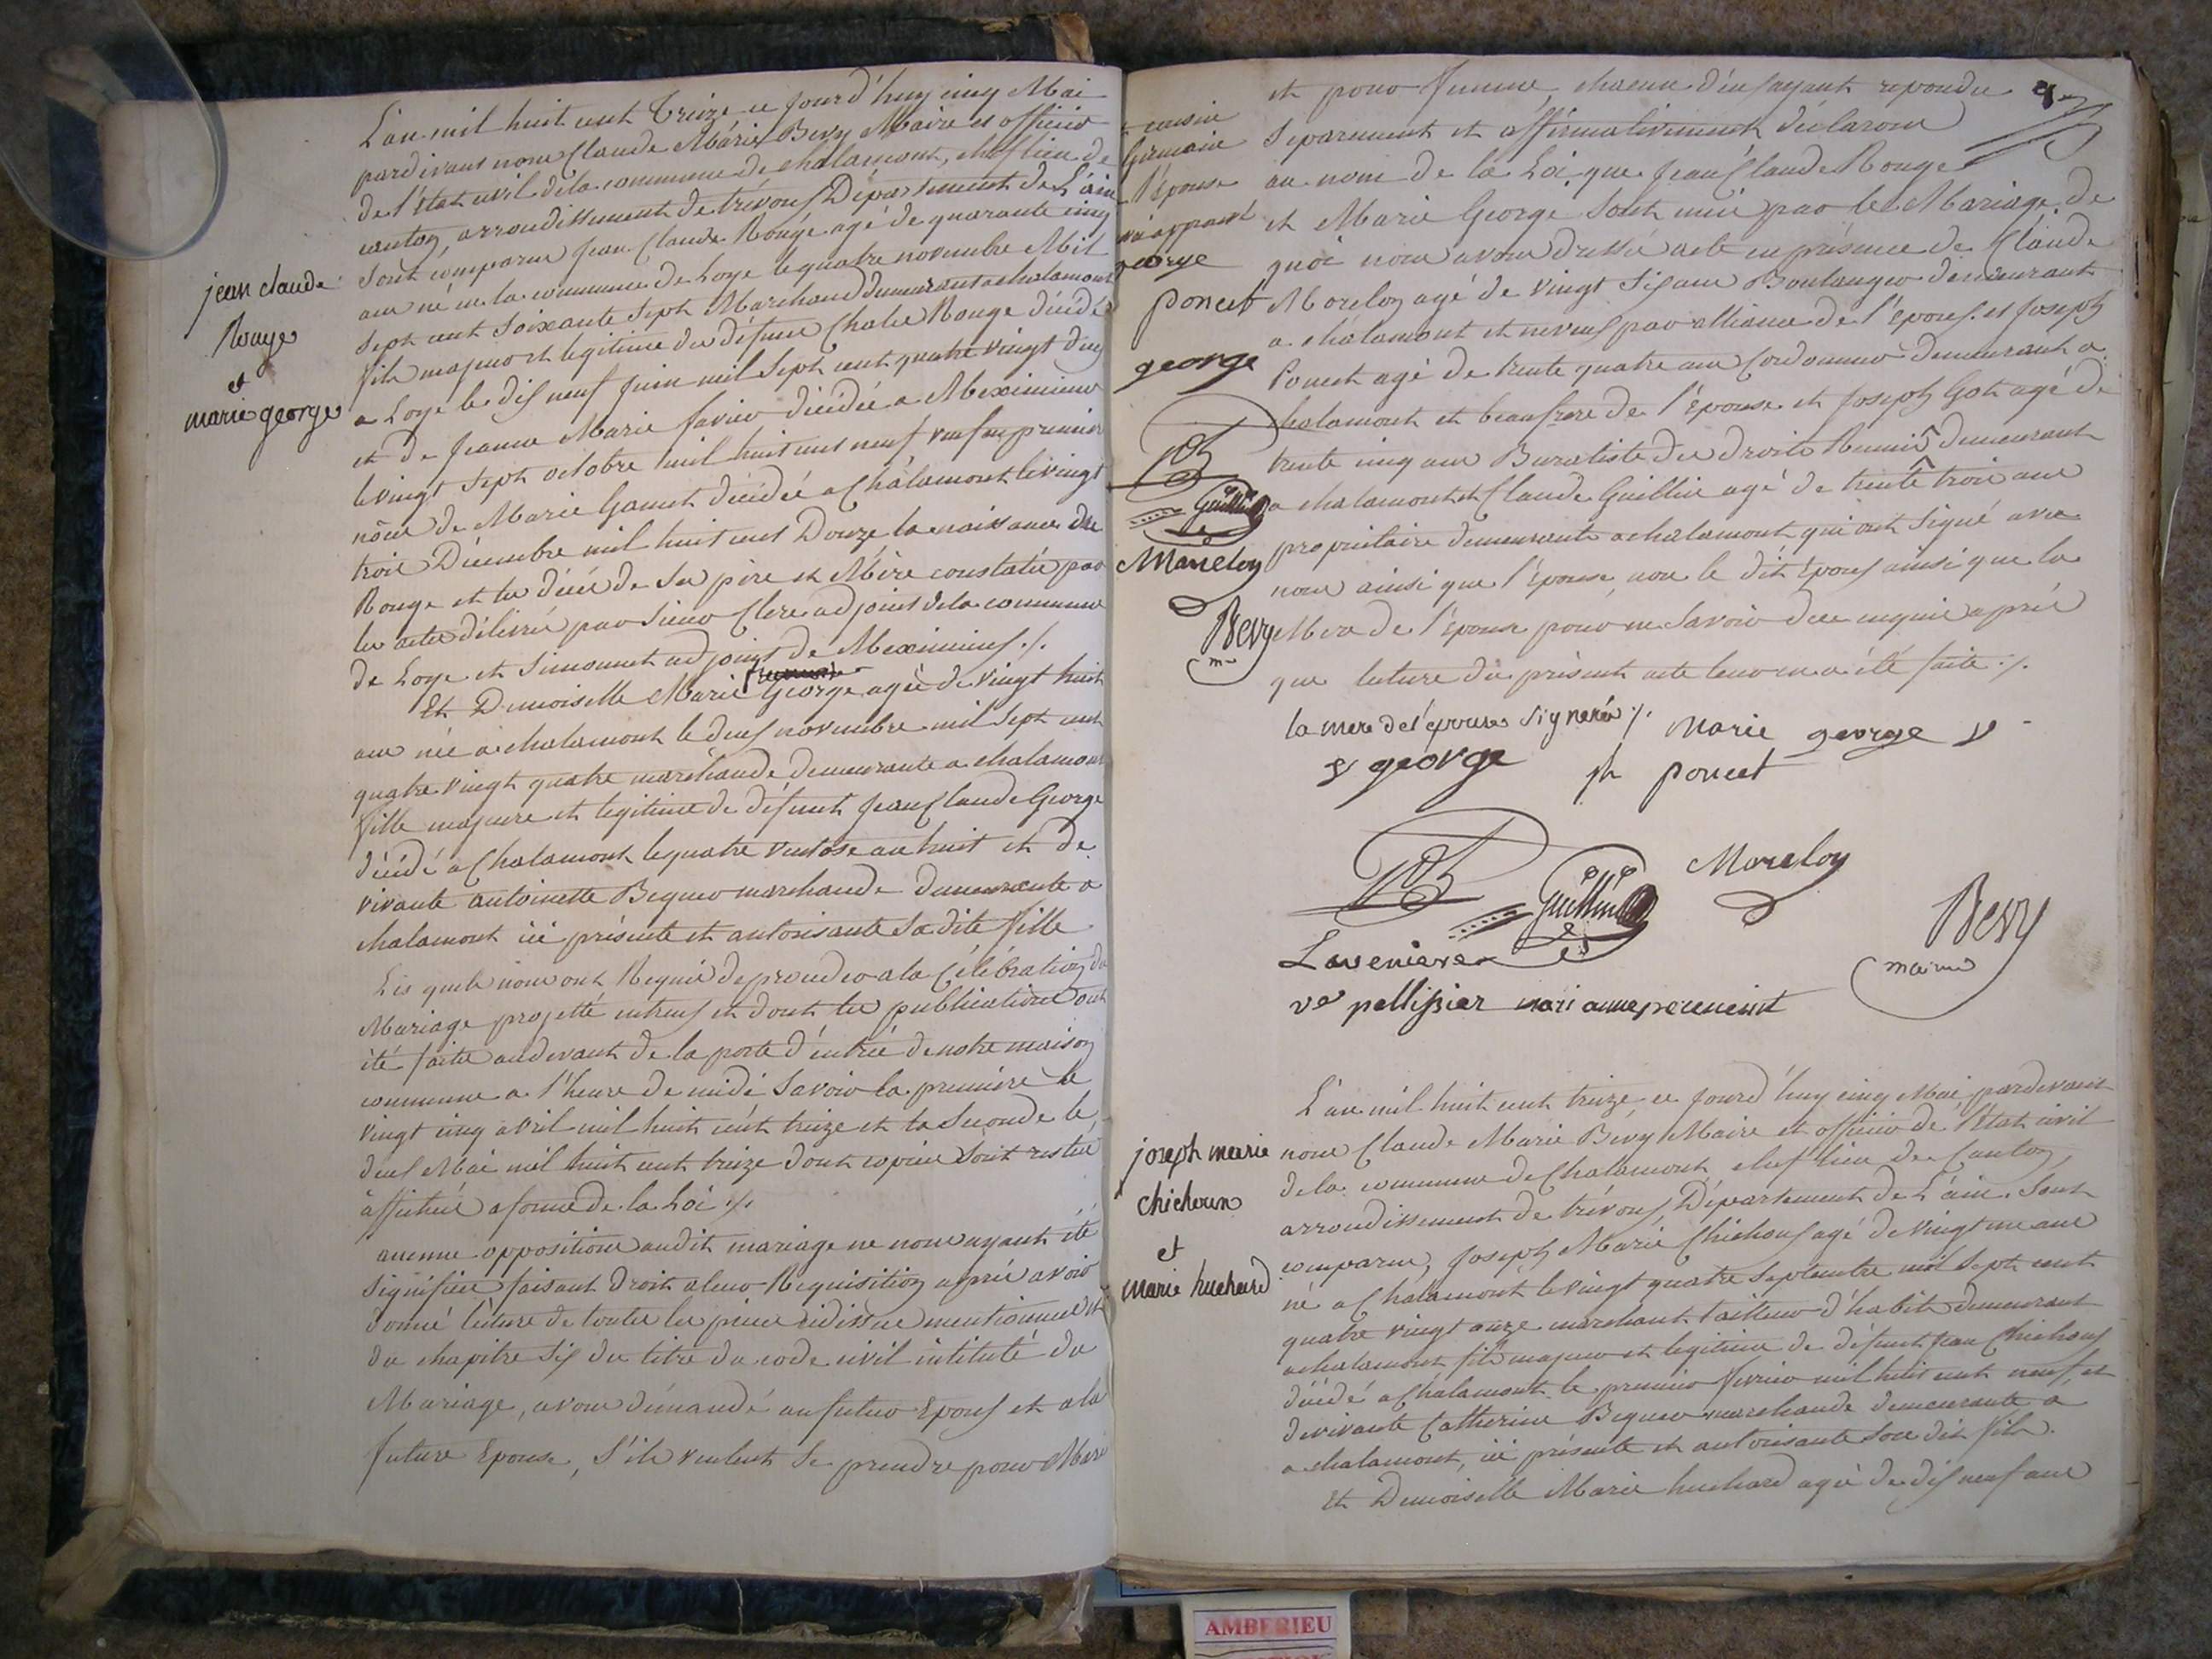 L'an mil huit cent treize ce jourd'huy cinq Mai
pardevant nous Claude Marie Bevy Maire et officier
de l'état civil de la commune de chalamont, chef lieu de
canton, arrondissement de trévoux Département de L'ain
Sont comparus Jean Claude Rouge agé de quarante cinq
ans né en la commune de Loye le quatre novembre Mil
Sept cent Soixante Sept Marchand demeurant a chalamont
fils majeur et legitime de défunt Charles Rouge décédé
a Loye le dix neuf Juin mil Sept cent quatre vingt deux
et de Jeanne Marie favier décédée a Meximieux
le vingt Sept octobre mil huit cent neuf veuf en premier
nôces de Marie Ganet décédée a Chalamont le vingt
trois Décembre mil huit cent Douze la naissance dudit
Rouge et les décès de Ses père et Mère constatés par
les actes délivrés par Sieurs Clerc adjoint de la commune
de Loye et Simonnet adjoint de Meximieux ./.
Et Demoiselle Marie George agée de vingt huit
ans née a chalamont le deux novembre mil Sept cent
quatre vingt quatre marchande demeurante a chalamont
fille majeure et legitime de défunt Jean Claude George
décédé a Chalamont le quatre ventose an huit et de
vivante antoinette Bequer marchande demeurante a
chalamont ici présente et autorisante Sa dite fille
Les quels nous ont Requis de proceder a la Célébration du
Mariage projetté entreux et dont les publications ont
été faites au devant de la porte d'entrée de notre maison
commune a l'heure de midi Savoir la première le
vingt cinq avril mil huit cent treize et la Seconde le
deux Mai mil huit cent treize dont copies Sont restées
affichées a forme de la Loi ./.
aucune opposition audit mariage ne nous ayant été
Signifiée faisant Droit a leur Requisition après avoir
donné lecture de toutes les pieces cidessus mentionnées et
du chapitre Six du titre du code civil intitulé du
Mariage, avons démandé au futur Epoux et a la
future Epouse, S'ils veulent Se prendre pour Mari
jean claude
Rouge
et
marie george
et pour femme, chacun d'eux ayant repondu
Separement et affirmativement déclarons
au nom de la Loi que Jean Claude Rouge
et Marie George Sont unis par le Mariage de
quoi nous avons dressé acte en présence de Claude
Morelon agé de vingt Six ans Boulanger demeurant
a chalamont et neveux par alliance de l'époux et Joseph
Poncet agé de trente quatre ans Cordonnier demeurant a
chalamont et beaufrere de l'épouse et Joseph Got agé de
trente cinq ans Buraliste des droits Reunis demeurant
a chalamont et Claude Guillin agé de trente trois ans
propriétaire demeurants a chalamont qui ont Signé avec
nous ainsi que l'épouse, non le dit époux ainsi que la
Mere de l'épouse pour ne Savoir de ce enquis après
que lecture du présent acte leur en a été faite ./.
cousine
Germaine
l'épouse
george
poncet
george
Guillin
Morelon
Bevy
m
la mere de l'epouse signeré ./. Marie george
george
jh poncet
Guillin
Morelon
Bevy
maire
Laveniere
ve pellissier mari anne
L'an mil huit cent treize ce jourd'huy cinq Mai pardevant
nous Claude Marie Bévy Maire et officier de l'état civil
de la commune de Chalamont chef lieu de Canton,
arrondissement de trévoux Département de L'ain. Sont
comparus, Joseph Marie Chichoux agé de vingt un ans
né a Chalamont le vingt quatre Septembre mil Sept cent
quatre vingt onze marchant tailleur d'habits demeurant
a chalamont fils majeur et legitime de défunt Jean Chichoux
décédé a Chalamont le premier fevrier mil huit cent neuf, et
de vivante Catherine Bequer marchande demeurante a
a chalamont, ici présente et autorisante Son dit fils.
Et Demoiselle Marie huchard agée de dix neuf ans
joseph marie
chichoux
et
marie huchard
AMBERIEU